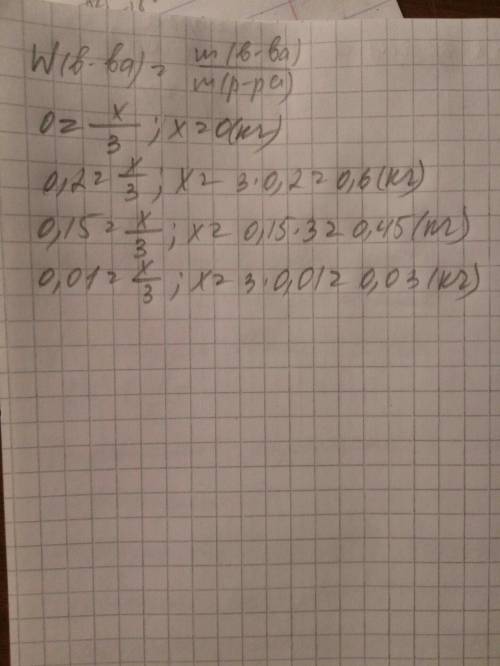 W(в-ва) = m(в-ва)/m(р-ра)
0 = x/3; x = 0(кг)
0,2 = x/3; x = 3·0,2 = 0,6(кг)
0,15 = x/3; x = 0,15·3 = 0,45(кг)
0,01 = x/3; x = 3·0,01 = 0,03(кг)